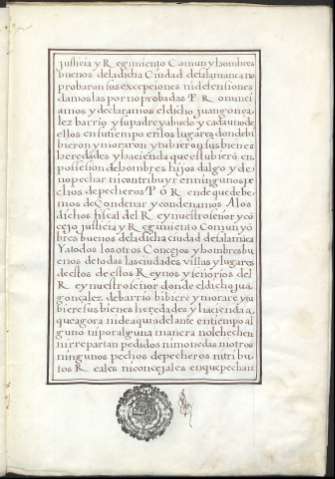 justicia y Regimiento Comun y hombres
buenos de la dicha Ciudad de salamanca no
probaron sus excepciones ni defensiones
damoslas por no probadas P R onunci
amos y declaramos el dicho juan gonça
lez barrio y su padre y abuelo y cada uno de
ellos en su tiempo en los lugares donde bi
bieron y moraron y tubieron sus biene
s heredades y hacienda que estubieró en
possesion de hombres hijos dalgo y de
no pechar ni contribuyr en ningunos pe
chos de pecheros P O R ende que debe
mos de Condenar y condenamos A los
dichos fiscal del Rey nuestro señor y cō
cejo justicia y Regimiento Comun y ō
bres buenos de la dicha ciudad de salamāca
Y a todos los otros Concejos y hombres bu
enos de todas las ciudades villas y lugares
de estos Reynos y señorios del
Rey nuestro señor donde el dicho juā
gonçalez de barrio bibiere y morare y tu
biere sus bienes heredades y hacienda a
que agora ni de aqui adelante en tiempo al
guno ni por alguna manera no le hechen
ni repartan pedidos ni monedas ni otros
ningunos pechos de pecheros ni tribu
tos Reales ni concejales en que pechan